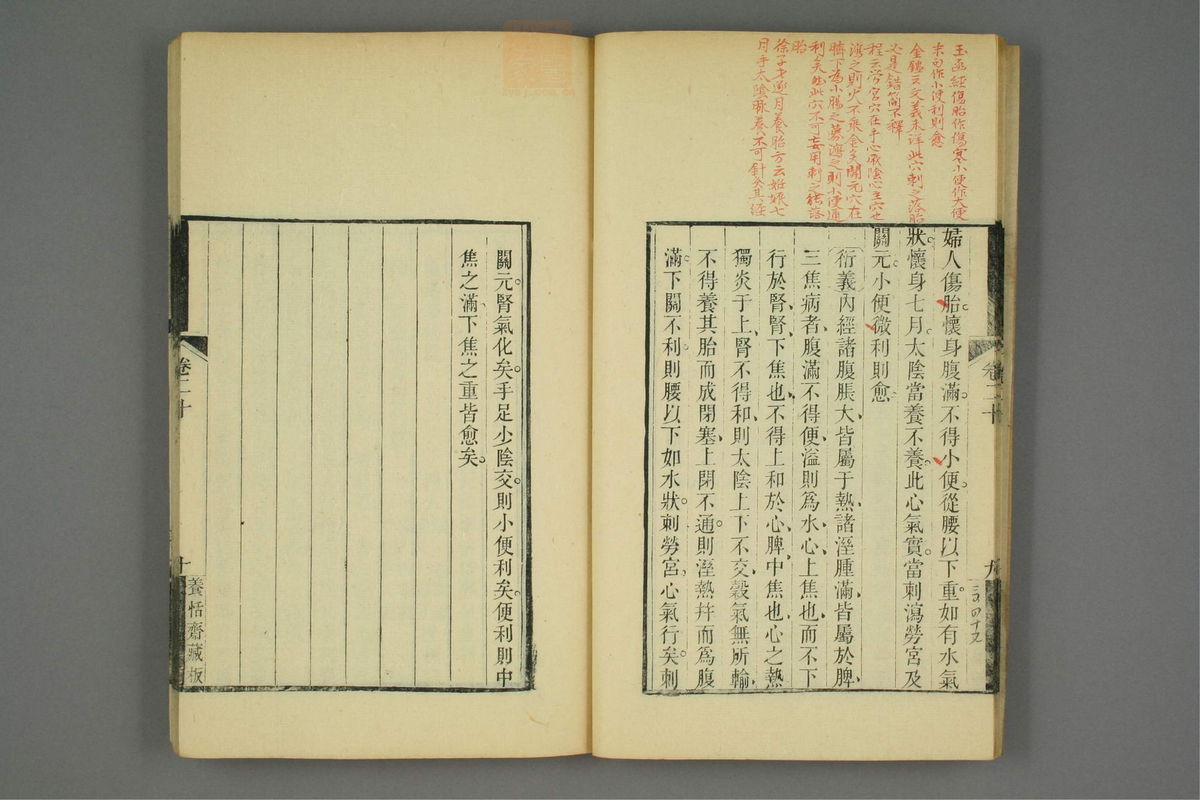 玉函經傷胎作傷寒小便作大便
末句作小便利則愈
金鑑云文義未詳此穴刺之落胎
必是錯簡不釋
程云勞宮穴在手心厥陰心主穴也
瀉之則火不乘金矣關元穴在
臍下為小腸之募瀉之則小便通
利矣此穴不可妄用刺之能落
胎
徐子才逐月養胎方云妊娠七
月手太陰脉養不可針灸其經
婦人傷胎懷身腹滿不得小便從腰以下重如有水氣
狀懷身七月太陰當養不養此心氣實當刺瀉勞宮及
關元小便微利則愈
衍義內經諸腹脹大皆屬于熱諸溼腫滿皆屬於脾
三焦病者腹滿不得便溢則爲水心上焦也而不下
行於腎腎下焦也不得上和於心脾中焦也心之熱
獨炎于上腎不得和則太陰上下不交穀氣無所輸
不得養其胎而成閉塞上閉不通則溼熱幷而爲腹
滿下關不利則腰以下如水狀刺勞宮心氣行矣刺
卷二十
九
關元腎氣化矣手足少陰交則小便利矣便利則中
焦之滿下焦之重皆愈矣
卷二十
十
養恬齋藏板